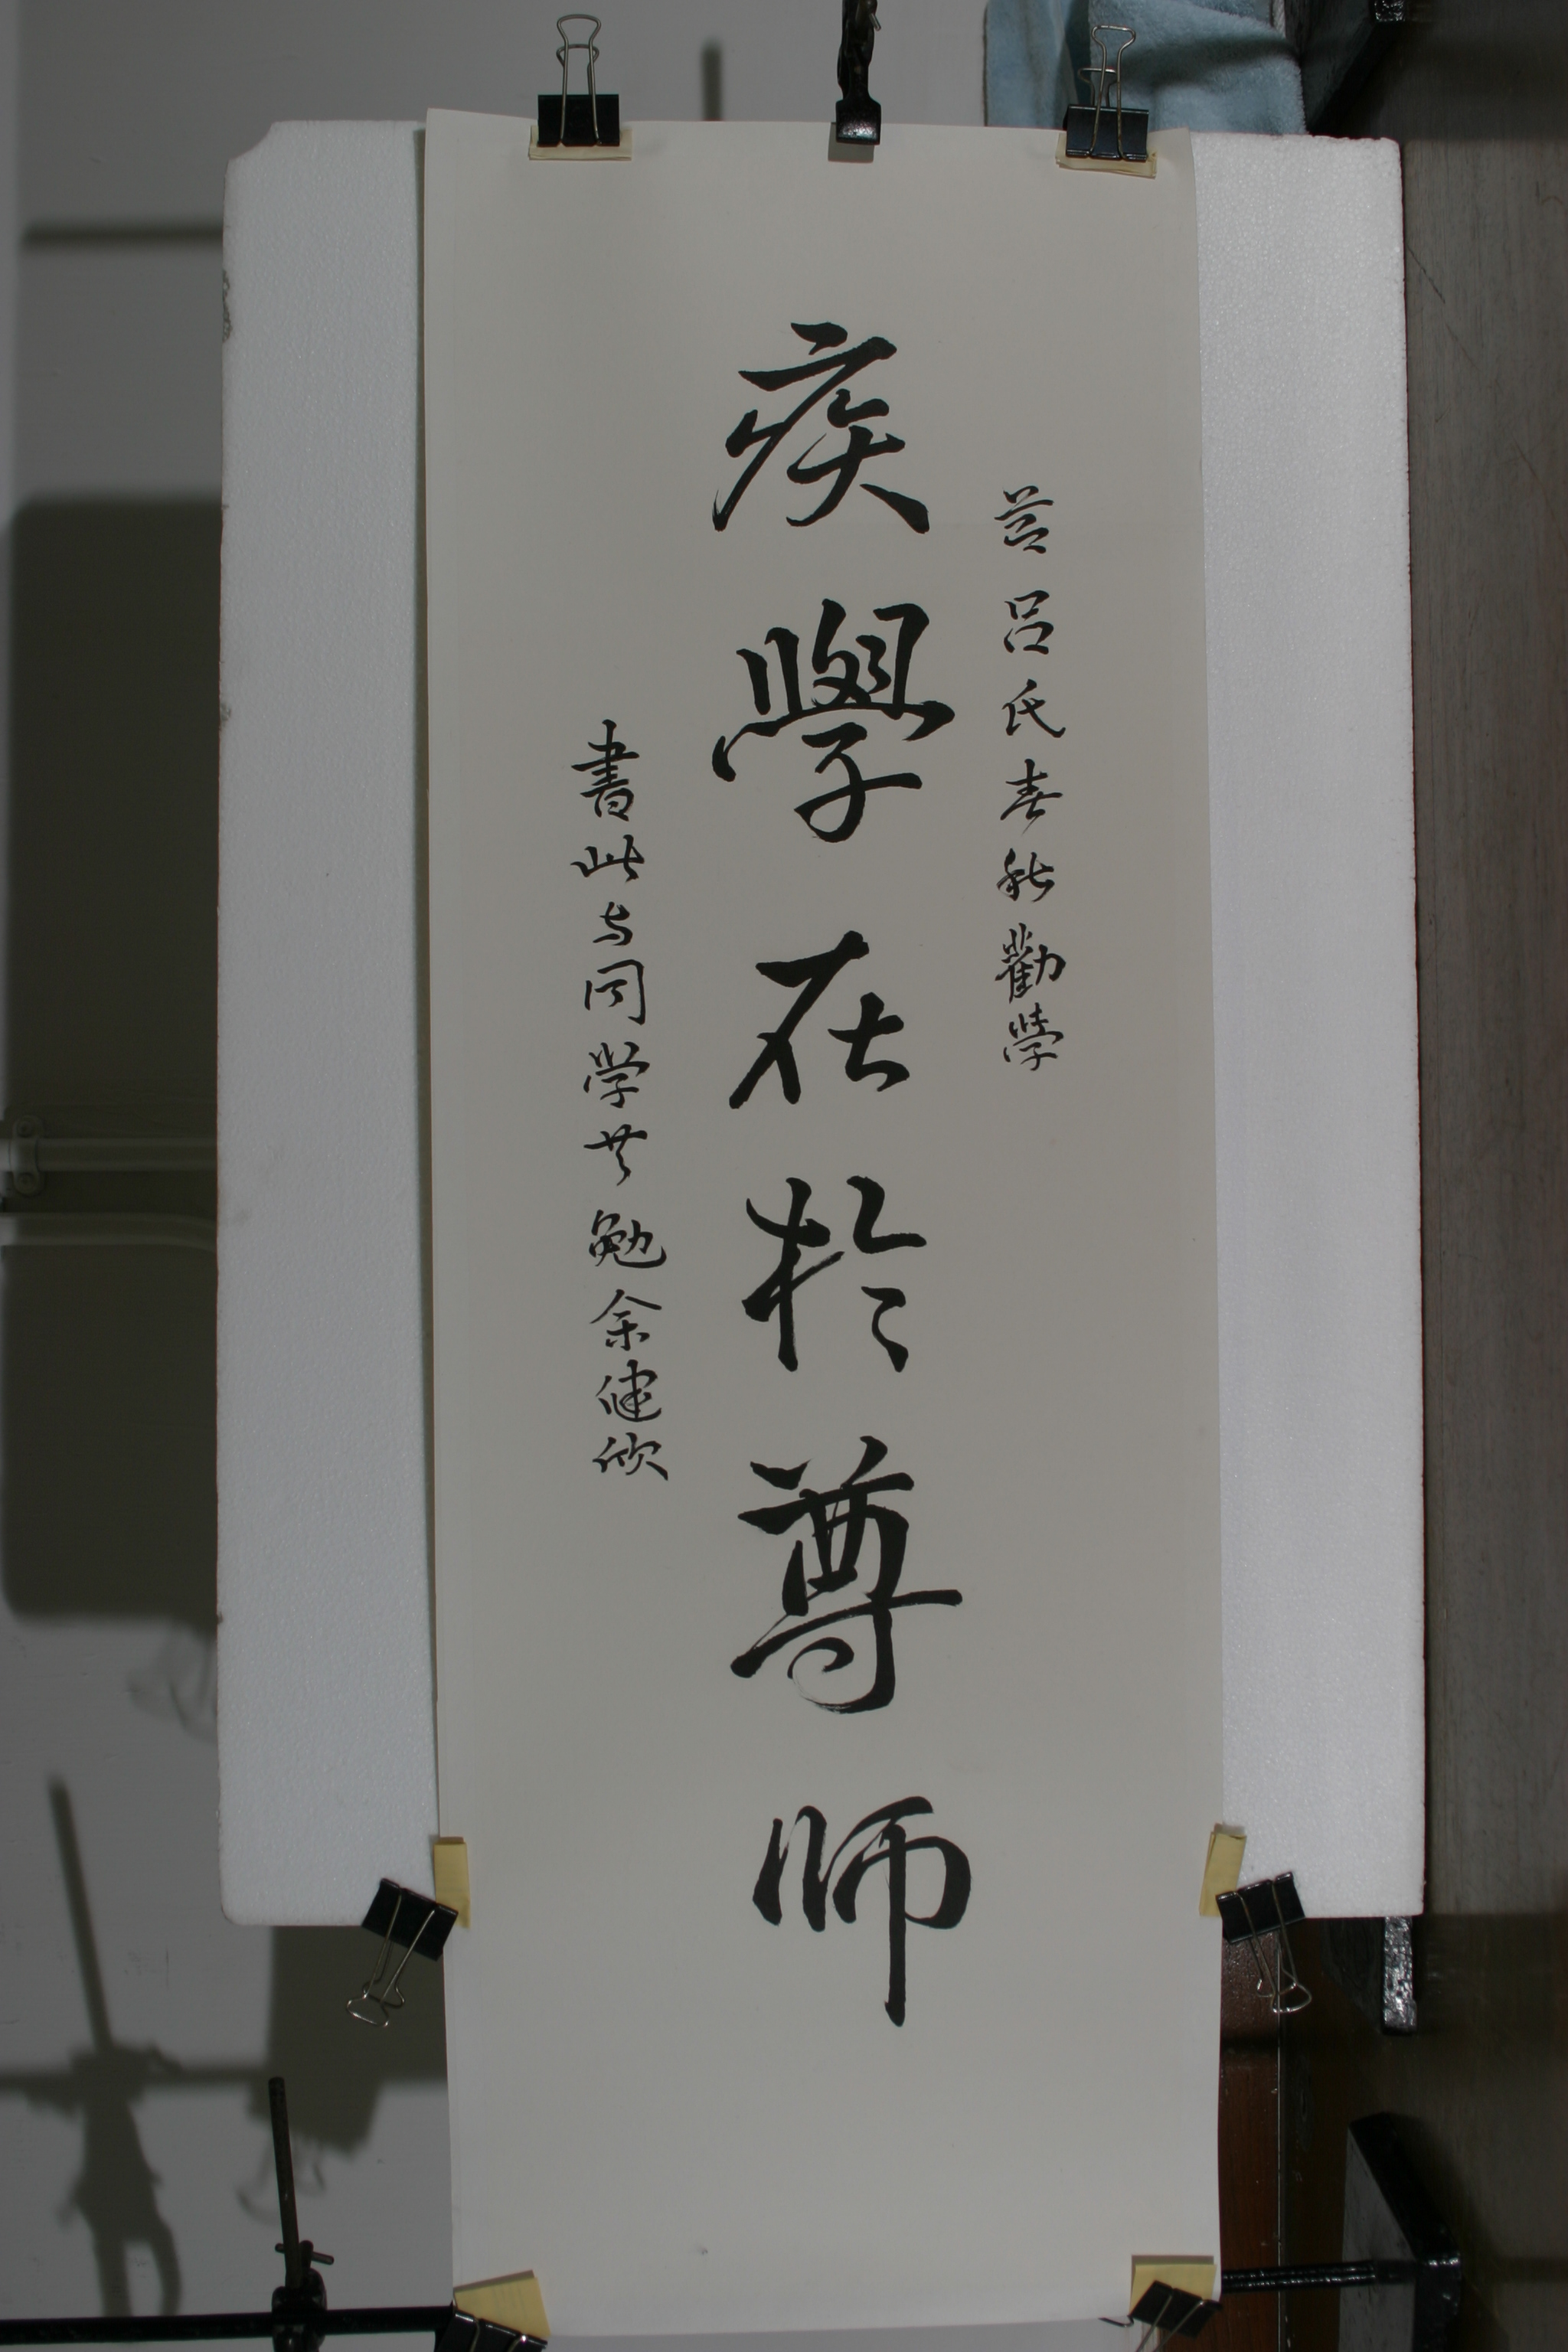 呂氏春秋勸學
疾學在於尊師
書此与同学共勉余健欣